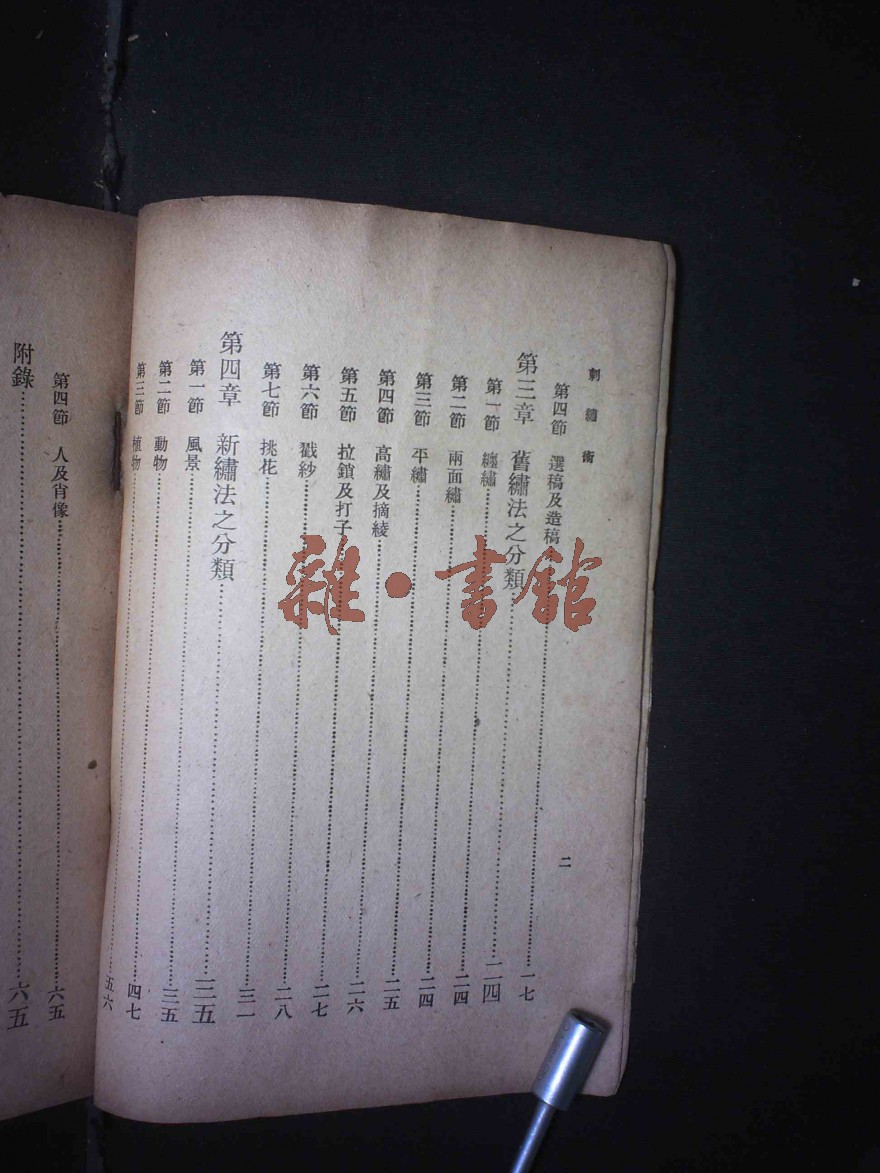 刺繡術
二
第四節 選稿及造稿……一七
第三章 舊繡法之分類……二四
第一節 纏繡……二四
第二節 兩面繡……二四
第三節 平繡……二五
第四節 高繡及摘綾……二六
第五節 拉鎖及打子……二七
第六節 戳紗……二八
第七節 挑花……三一
第四章 新繡法之分類……三五
第一節 風景……三五
第二節 動物……四七
第三節 植物……五六
第四節 人及肖像……六五
附錄……六五
雜·書館